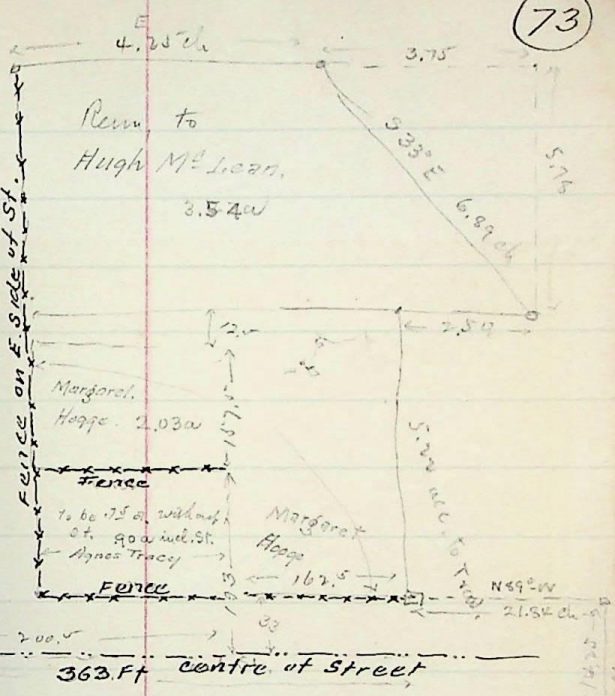 73
E
4.25 ch
3.75
Rem. to
Hugh McLean.
3.54a
S33°E 6.89 ch
5.78
Fence on E. Side of St.
12.0
2.54
Margaret.
Hogge. 2.03a
157.5
Fence
to be .75 a. without
St. 90a incl. St.
Agnes Tracy
Margaret
Hogge
5.22 acc. to
Fence
162.5
193
33
N89°W
21.84 ch
200.0
363 Ft centre of Street